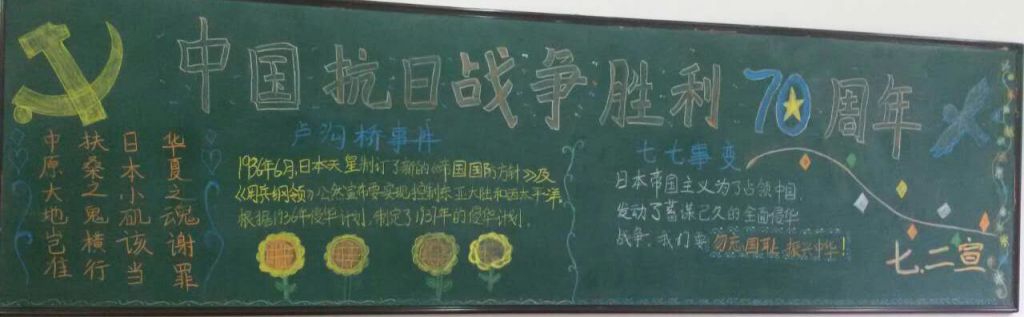 中国抗日战争胜利70周年
中原大地岂准
扶桑之鬼横行
日本小矶该当
华夏之魂谢罪
卢沟桥事件
1936年6月,日本天皇制订了新的《帝国国防方针》及
《用兵纲领》公然宣布要实现控制东亚大陆和西太平洋,
根据1936年侵华计划,制定了1937年的侵华计划.
七七事变
日本帝国主义为了占领中国,
发动了蓄谋已久的全面侵华
战争,我们要勿忘国耻 振兴中华!
七.二宣